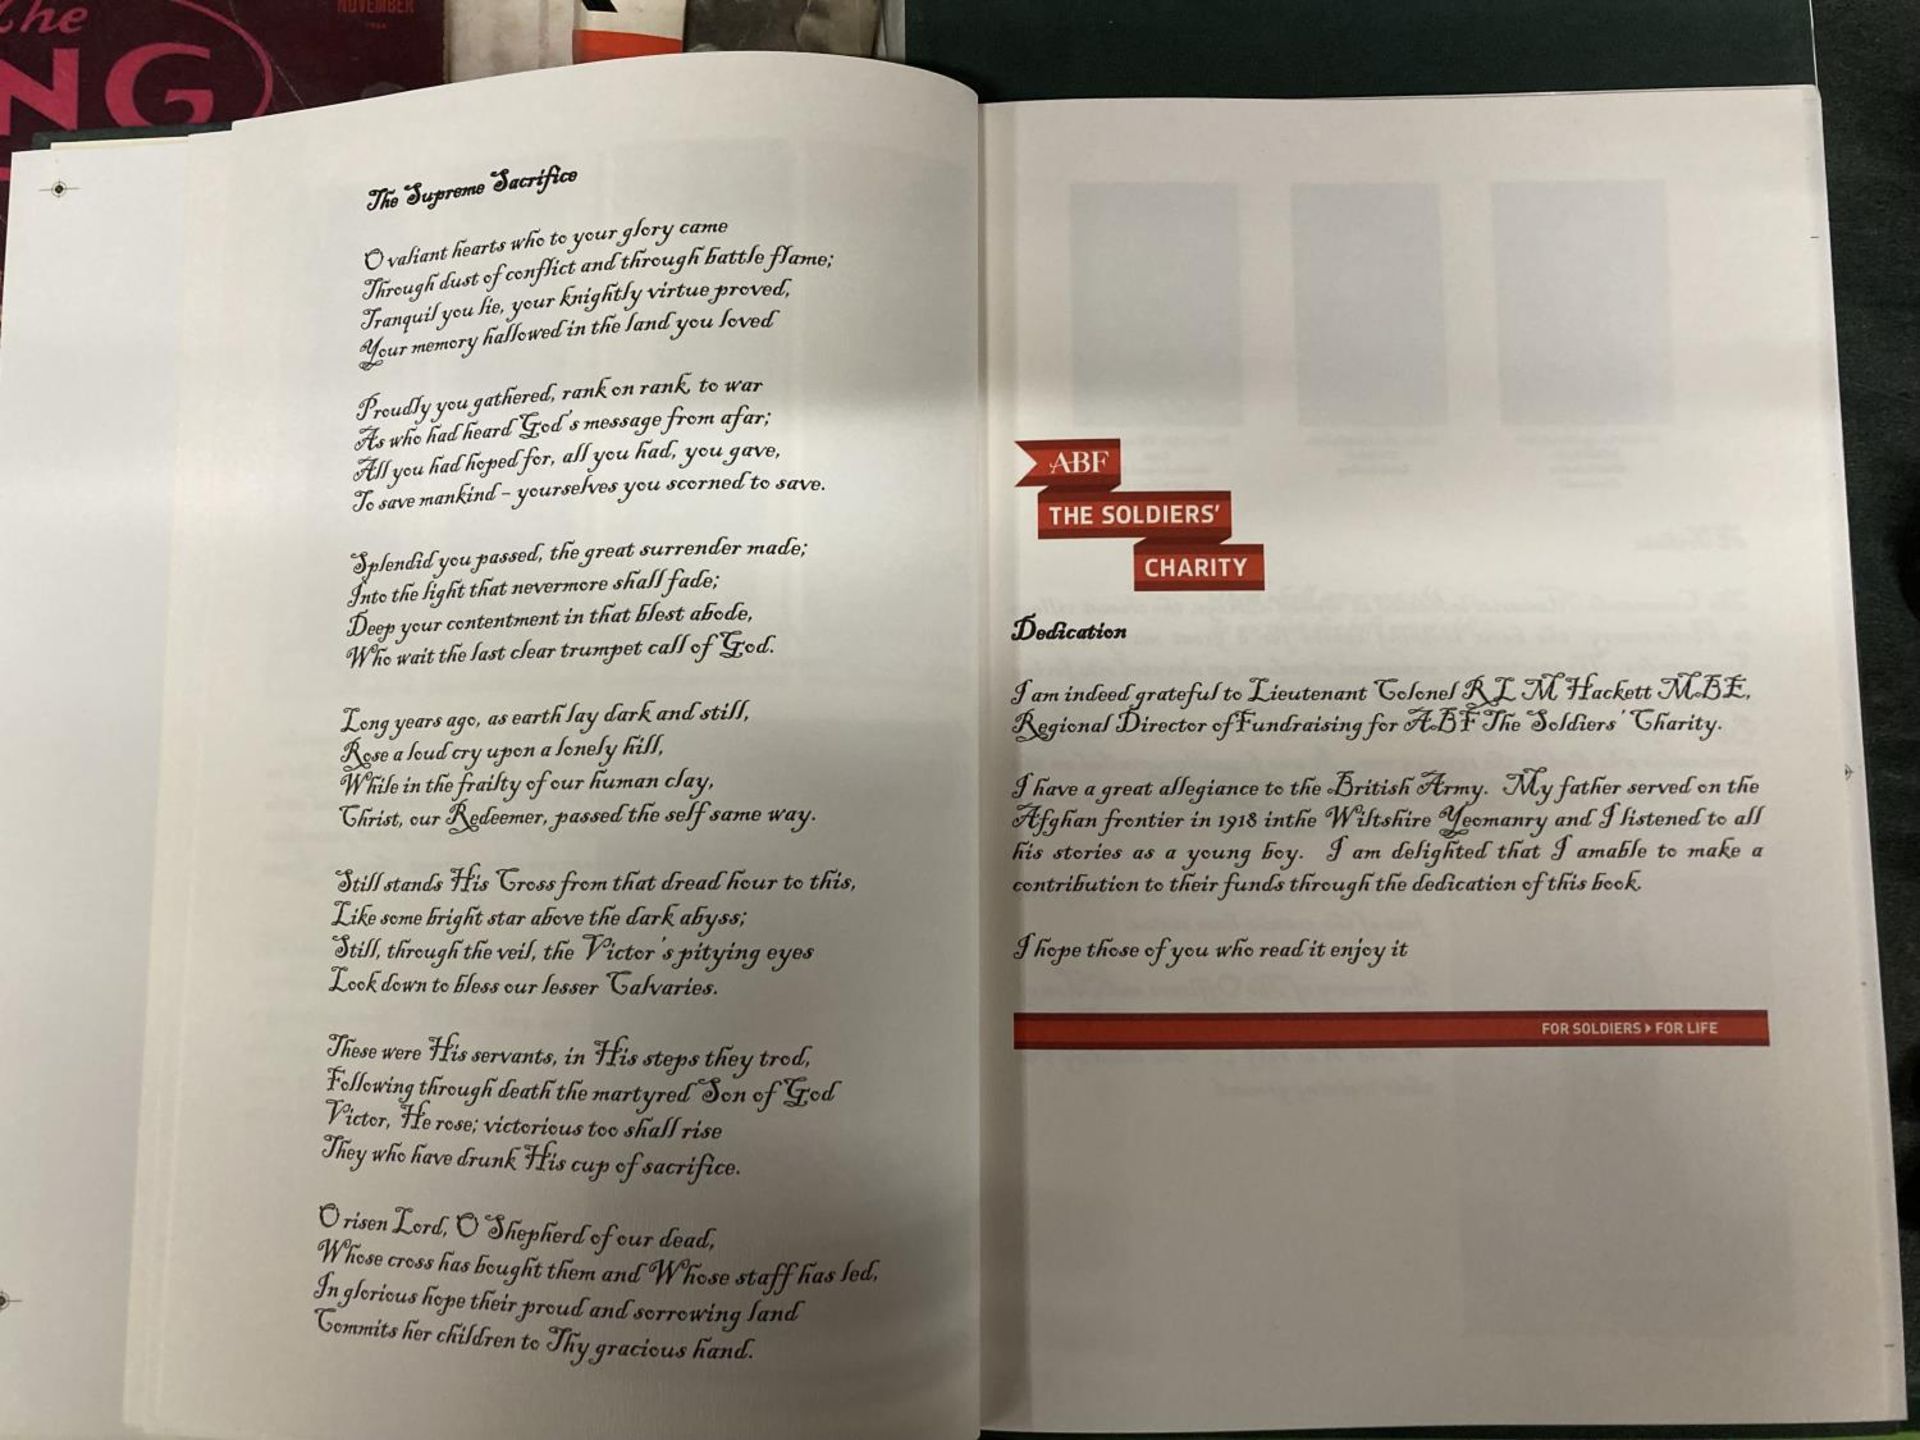 The
NG
NOVEMBER
The Supreme Sacrifice
O valiant hearts who to your glory came
Through dust of conflict and through battle flame;
Tranquil you lie, your knightly virtue proved,
Your memory hallowed in the land you loved
Proudly you gathered, rank on rank, to war
As who had heard God's message from afar;
All you had hoped for, all you had, you gave,
To save mankind – yourselves you scorned to save.
Splendid you passed, the great surrender made;
Into the light that nevermore shall fade;
Deep your contentment in that blest abode,
Who wait the last clear trumpet call of God.
Long years ago, as earth lay dark and still,
Rose a loud cry upon a lonely hill,
While in the frailty of our human clay,
Christ, our Redeemer, passed the self same way.
Still stands His Cross from that dread hour to this,
Like some bright star above the dark abyss;
Still, through the veil, the Victor's pitying eyes
Look down to bless our lesser Calvaries.
These were His servants, in His steps they trod,
Following through death the martyred Son of God
Victor, He rose; victorious too shall rise
They who have drunk His cup of sacrifice.
O risen Lord, O Shepherd of our dead,
Whose cross has bought them and Whose staff has led,
In glorious hope their proud and sorrowing land
Commits her children to Thy gracious hand.
ABF
THE SOLDIERS'
CHARITY
Dedication
I am indeed grateful to Lieutenant Colonel R L M Hackett MBE,
Regional Director of Fundraising for ABF The Soldiers' Charity.
I have a great allegiance to the British Army. My father served on the
Afghan frontier in 1918 inthe Wiltshire Yeomanry and I listened to all
his stories as a young boy. I am delighted that I amable to make a
contribution to their funds through the dedication of this book.
I hope those of you who read it enjoy it
FOR SOLDIERS FOR LIFE